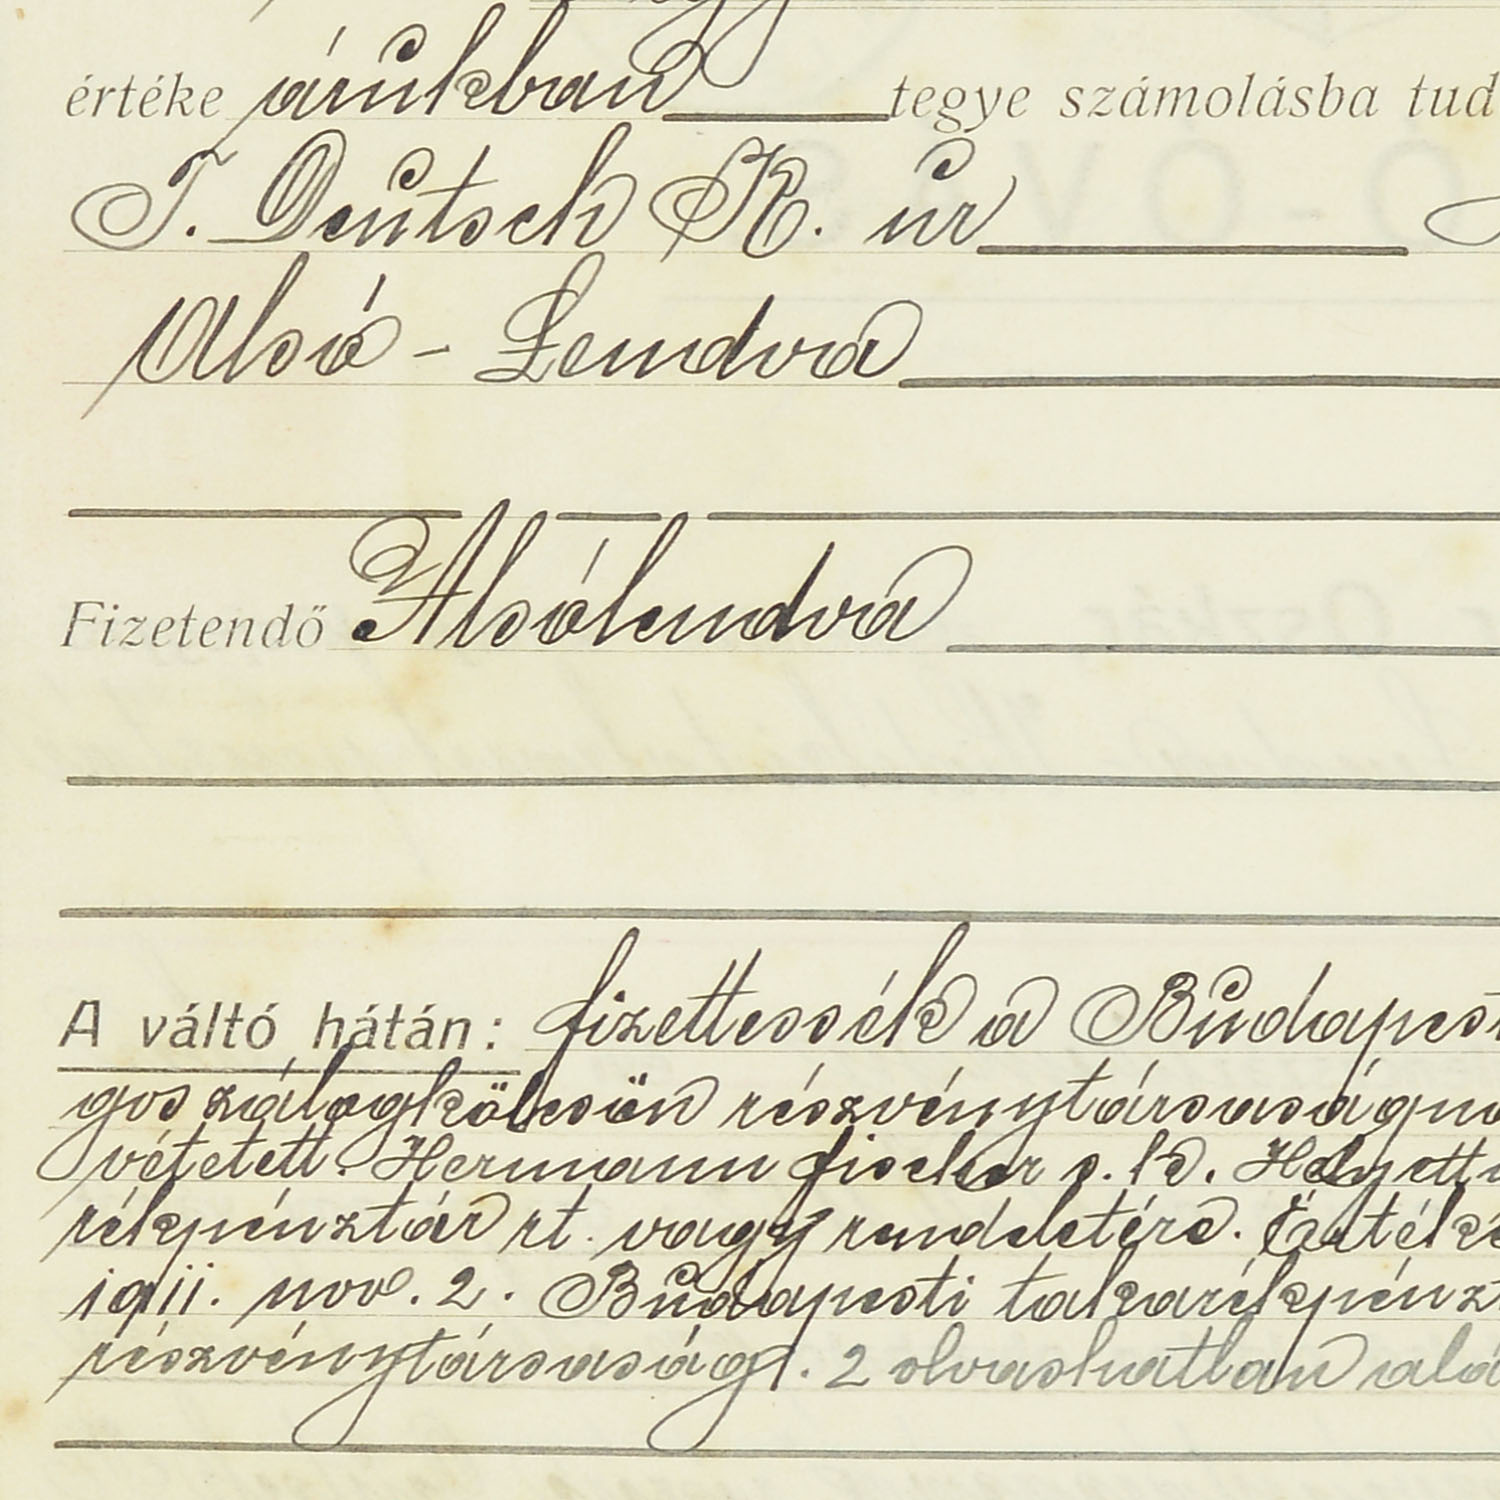 értéke árukban tegye számolásba tud
T. Deutsch K. úr
Alsó-Lendva
Fizetendő Alsólendva
A váltó hátán: fizettessék a Budapest
gos zálogkölcsön részvénytársaságna
vétetett. Hermann Fischer s. k. Helyette
rékpénztár rt. vagy rendeletére. Érték
1911. nov. 2. Budapesti takarékpénzt
részvénytársaság. 2 olvashatlan alá